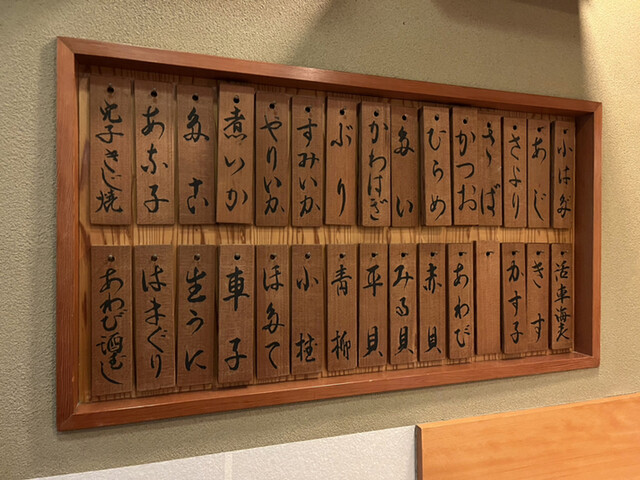 小はだ
あじ
さより
さば
かつお
ひらめ
たい
かわはぎ
ぶり
すみいか
やりいか
煮いか
たこ
あな子
玉子きじ焼
活車海老
きす
かす子
あわび
赤貝
みる貝
平貝
青柳
小柱
ほたて
車子
生うに
はまぐり
あわび酒むし